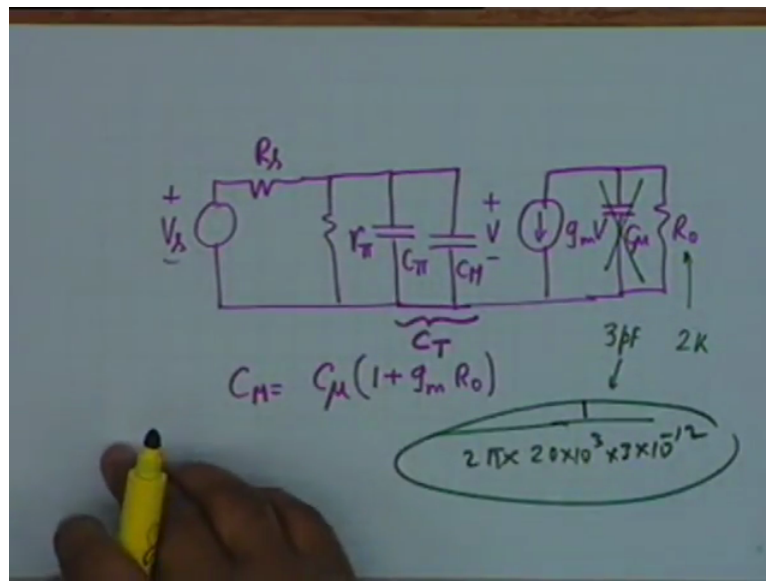 Rs
+
Vs
−
rπ
Cπ
CM
+
V
−
gmV
Cμ
R0
CT
3pf
2K
CM = Cμ(1 + gm R0)
1
2π × 20×10³ × 3×10⁻¹²